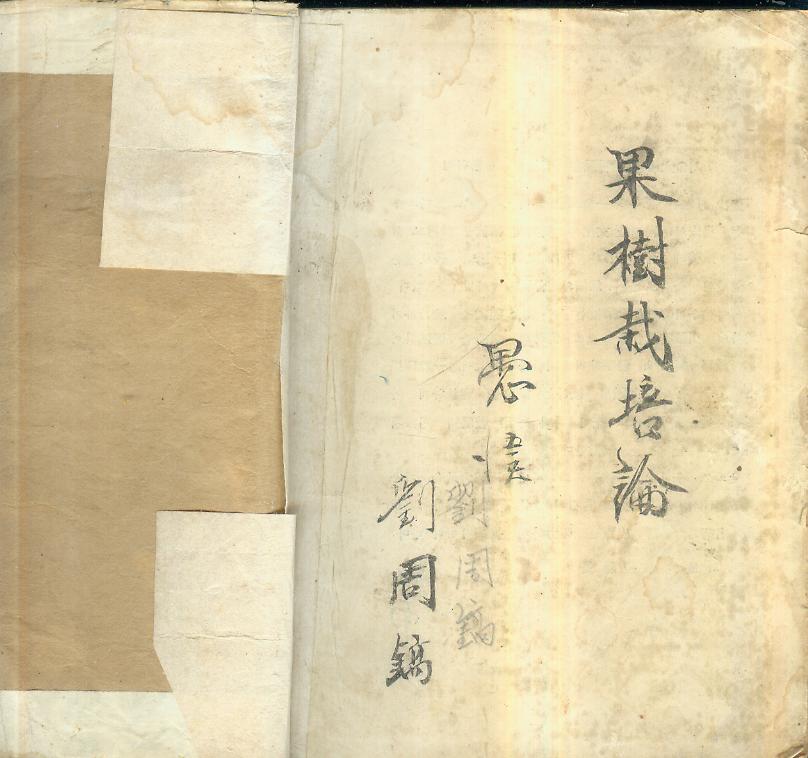 果樹栽培論
愚
劉周鎬
劉周鎬